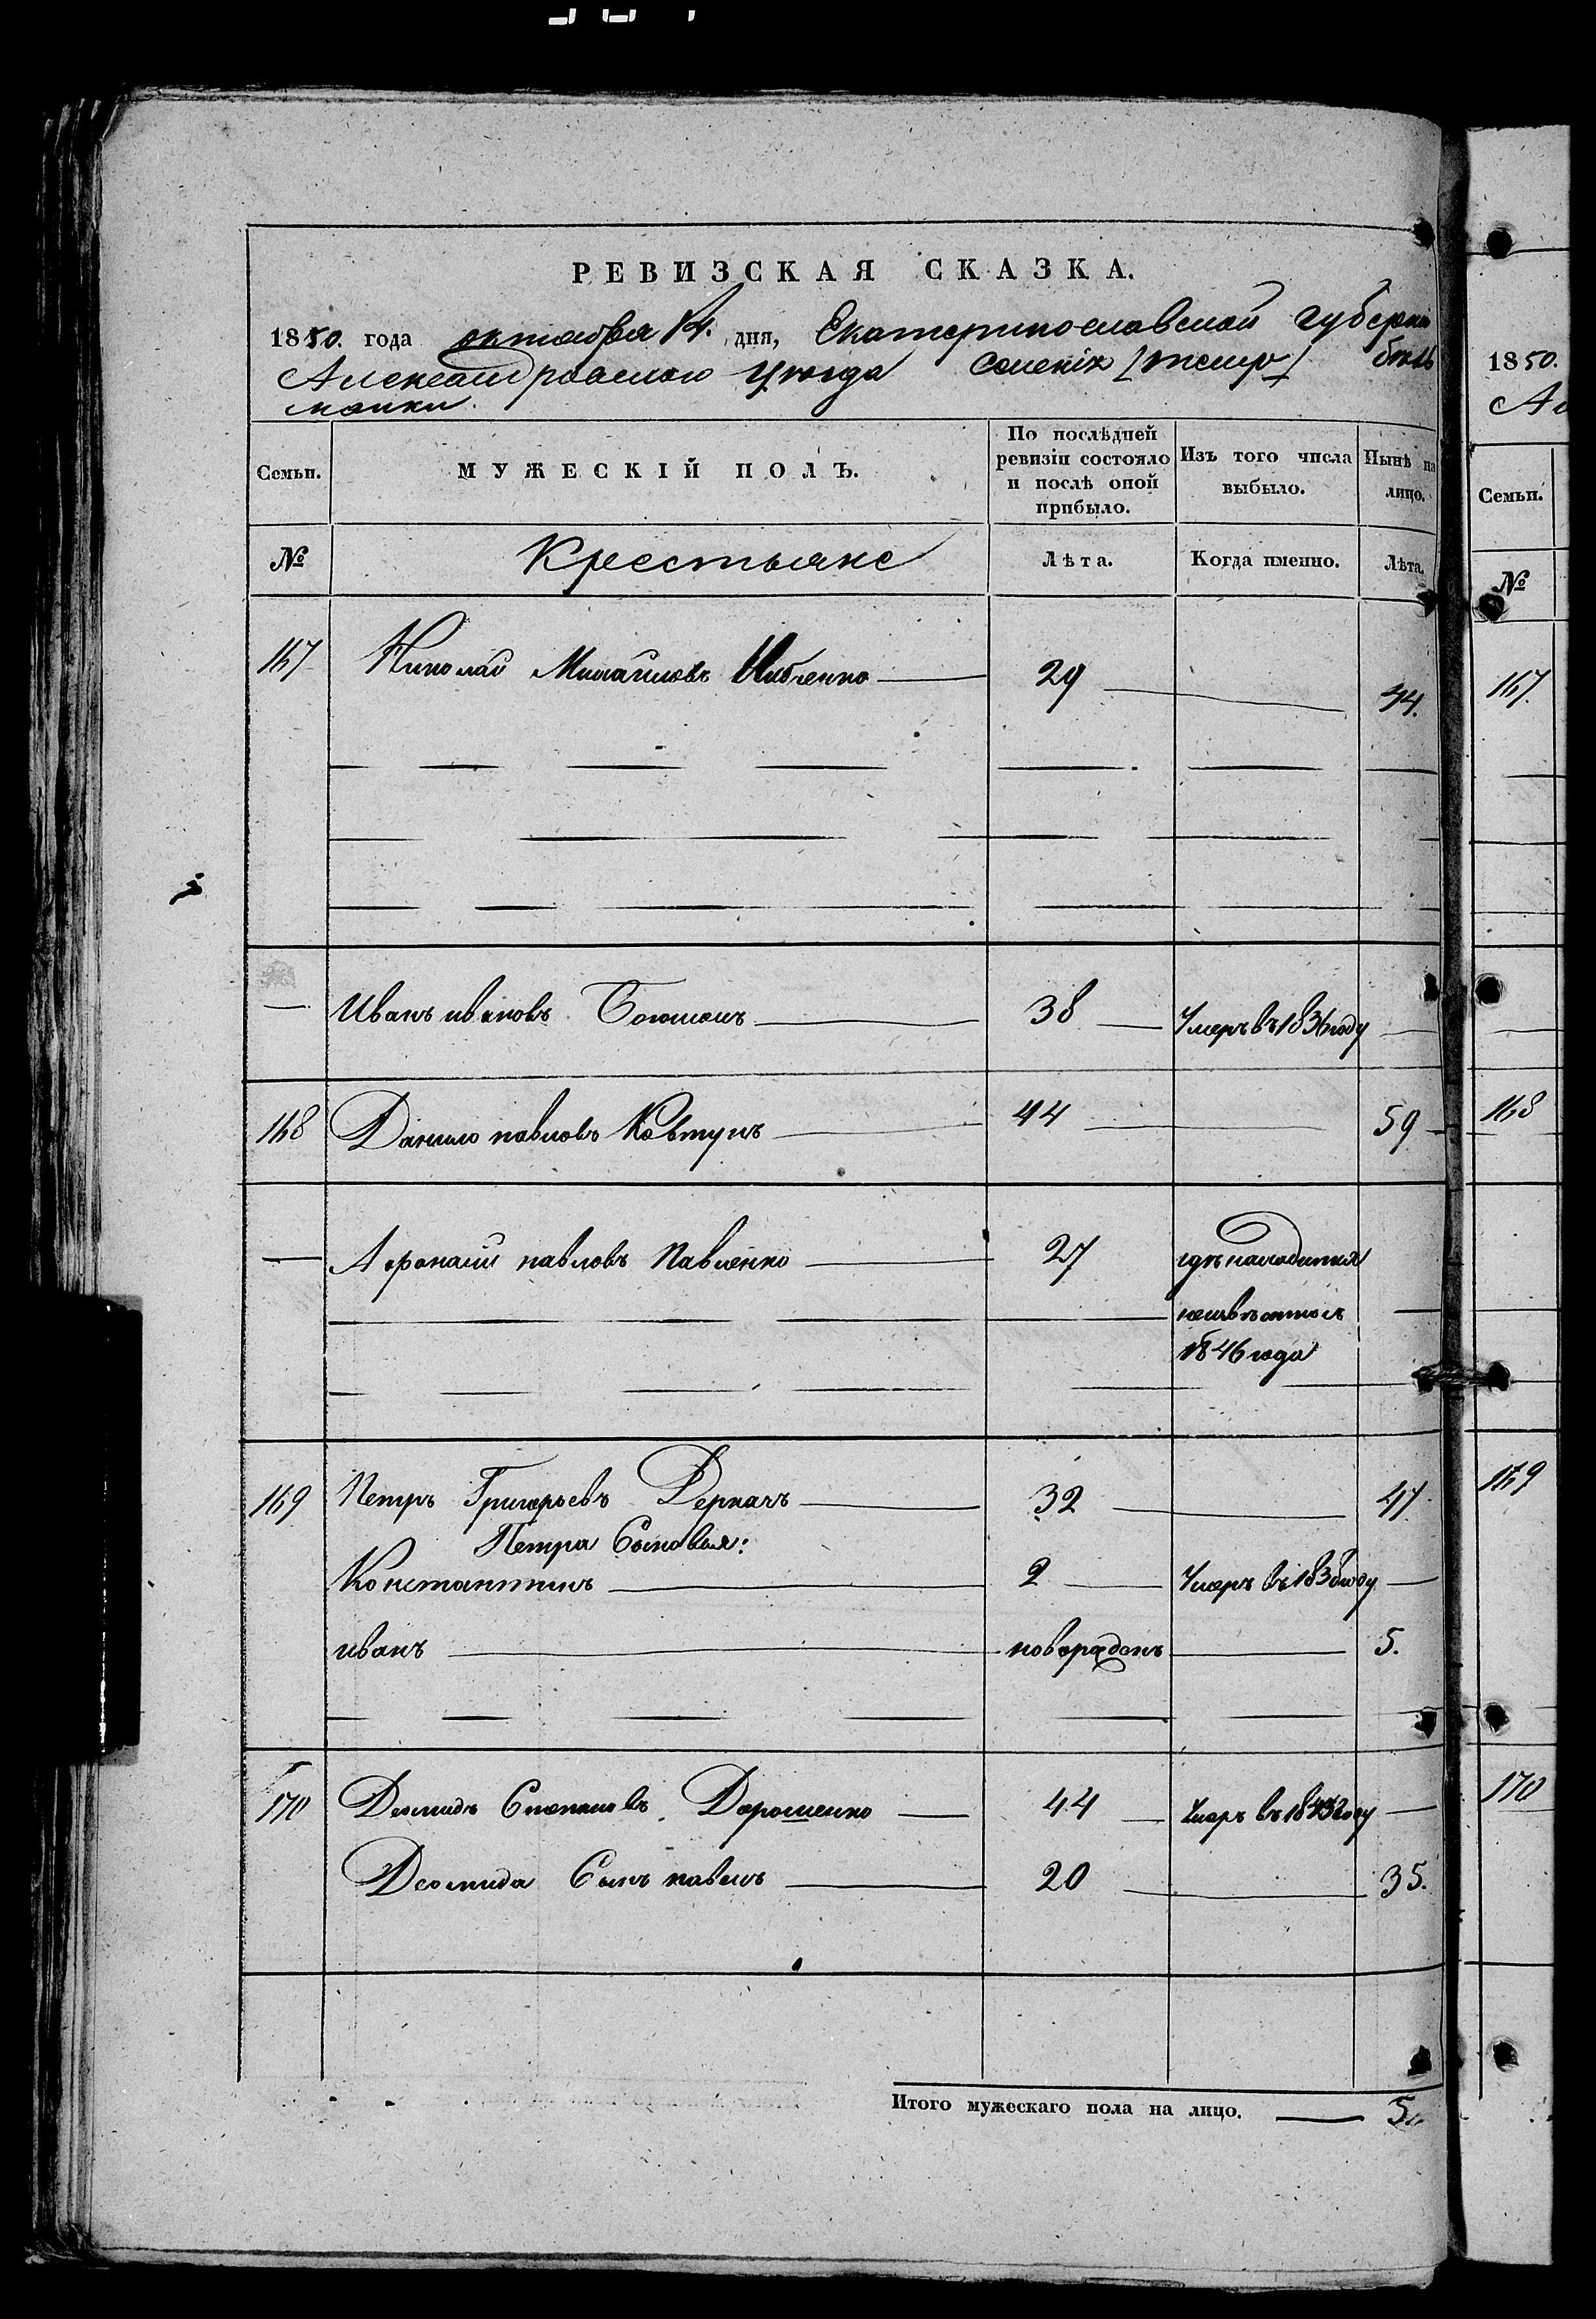 РЕВИЗСКАЯ СКАЗКА.
1850. года октября 14. дня, Екатеринославской губернiи
Александровского уѣзда селенiя
майки.
1850.
Семьи. МУЖЕСКIЙ ПОЛЪ. По послѣдней ревизiи состояло и послѣ оной прибыло. Изъ того числа выбыло. Нынѣ на лицо.
Семьи.
№ Крестьяне Лѣта. Когда именно. Лѣта.
№
167 Николай Михайловъ 29 44. 167.
Иванъ ивановъ 38 Умеръ въ 1836 году
168 Данило павловъ Ковтунъ 44 59 168
Афонасiй павловъ павленко 27 гдѣ находится
неизвѣстно съ
1846 года
169 Петръ Григорьевъ Деркачъ 32 47. 169
Петра Сыновья:
Константинъ 2 Умеръ въ 1838 году
иванъ новорожденъ 5.
170 Деомидъ Степановъ Дорошенко 44 Умеръ въ году 170
Деомида Сынъ павелъ 20 35.
Итого мужескаго пола на лицо. 5.